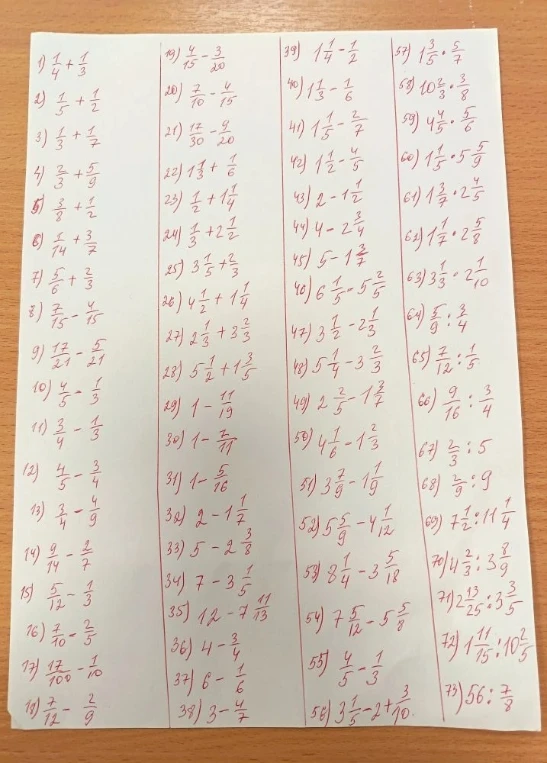 1) 1/4 + 1/3
2) 1/5 + 1/2
3) 1/3 + 1/7
4) 2/3 + 5/9
5) 3/8 + 1/2
6) 1/14 + 3/7
7) 5/6 + 2/3
8) 7/15 - 4/15
9) 17/21 - 5/21
10) 4/5 - 1/3
11) 3/4 - 1/3
12) 4/5 - 3/4
13) 3/4 - 4/9
14) 9/14 - 2/7
15) 5/12 - 1/3
16) 7/10 - 2/5
17) 17/100 - 1/10
18) 7/12 - 2/9
19) 4/15 - 3/20
20) 7/10 - 4/15
21) 17/30 - 9/20
22) 1 1/3 + 1/6
23) 1/2 + 1 1/4
24) 1/3 + 2 1/2
25) 3 1/5 + 2/3
26) 4 1/2 + 1 1/4
27) 2 1/3 + 3 2/3
28) 5 1/2 + 1 3/5
29) 1 - 11/19
30) 1 - 7/11
31) 1 - 5/16
32) 2 - 1 1/7
33) 5 - 2 3/8
34) 7 - 3 1/5
35) 12 - 7 11/13
36) 4 - 3/4
37) 6 - 1/6
38) 3 - 4/7
39) 1 1/4 - 1/2
40) 1 1/3 - 1/6
41) 1 1/5 - 2/7
42) 1 1/2 - 4/5
43) 2 - 1 1/2
44) 4 - 2 3/4
45) 5 - 1 3/7
46) 6 1/5 - 5 2/5
47) 3 1/2 - 2 1/3
48) 5 1/4 - 3 2/3
49) 2 2/5 - 1 3/7
50) 4 1/6 - 1 2/3
51) 3 7/9 - 1 1/9
52) 5 5/9 - 4 1/12
53) 8 1/4 - 3 5/18
54) 7 5/12 - 5 5/8
55) 4/5 - 1/3
56) 3 1/5 - 2 + 3/10
57) 1 3/5 · 5/7
58) 10 2/3 · 3/8
59) 4 4/5 · 5/6
60) 1 1/5 · 5 5/9
61) 1 3/7 · 2 4/5
62) 1 1/7 · 2 5/8
63) 3 1/3 · 2 1/10
64) 5/9 : 3/4
65) 7/12 : 1/5
66) 9/16 : 3/4
67) 2/3 : 5
68) 2/9 : 9
69) 7 1/2 : 11 1/4
70) 4 2/3 : 3 8/9
71) 2 13/25 : 3 3/5
72) 1 11/15 : 10 2/5
73) 56 : 7/8